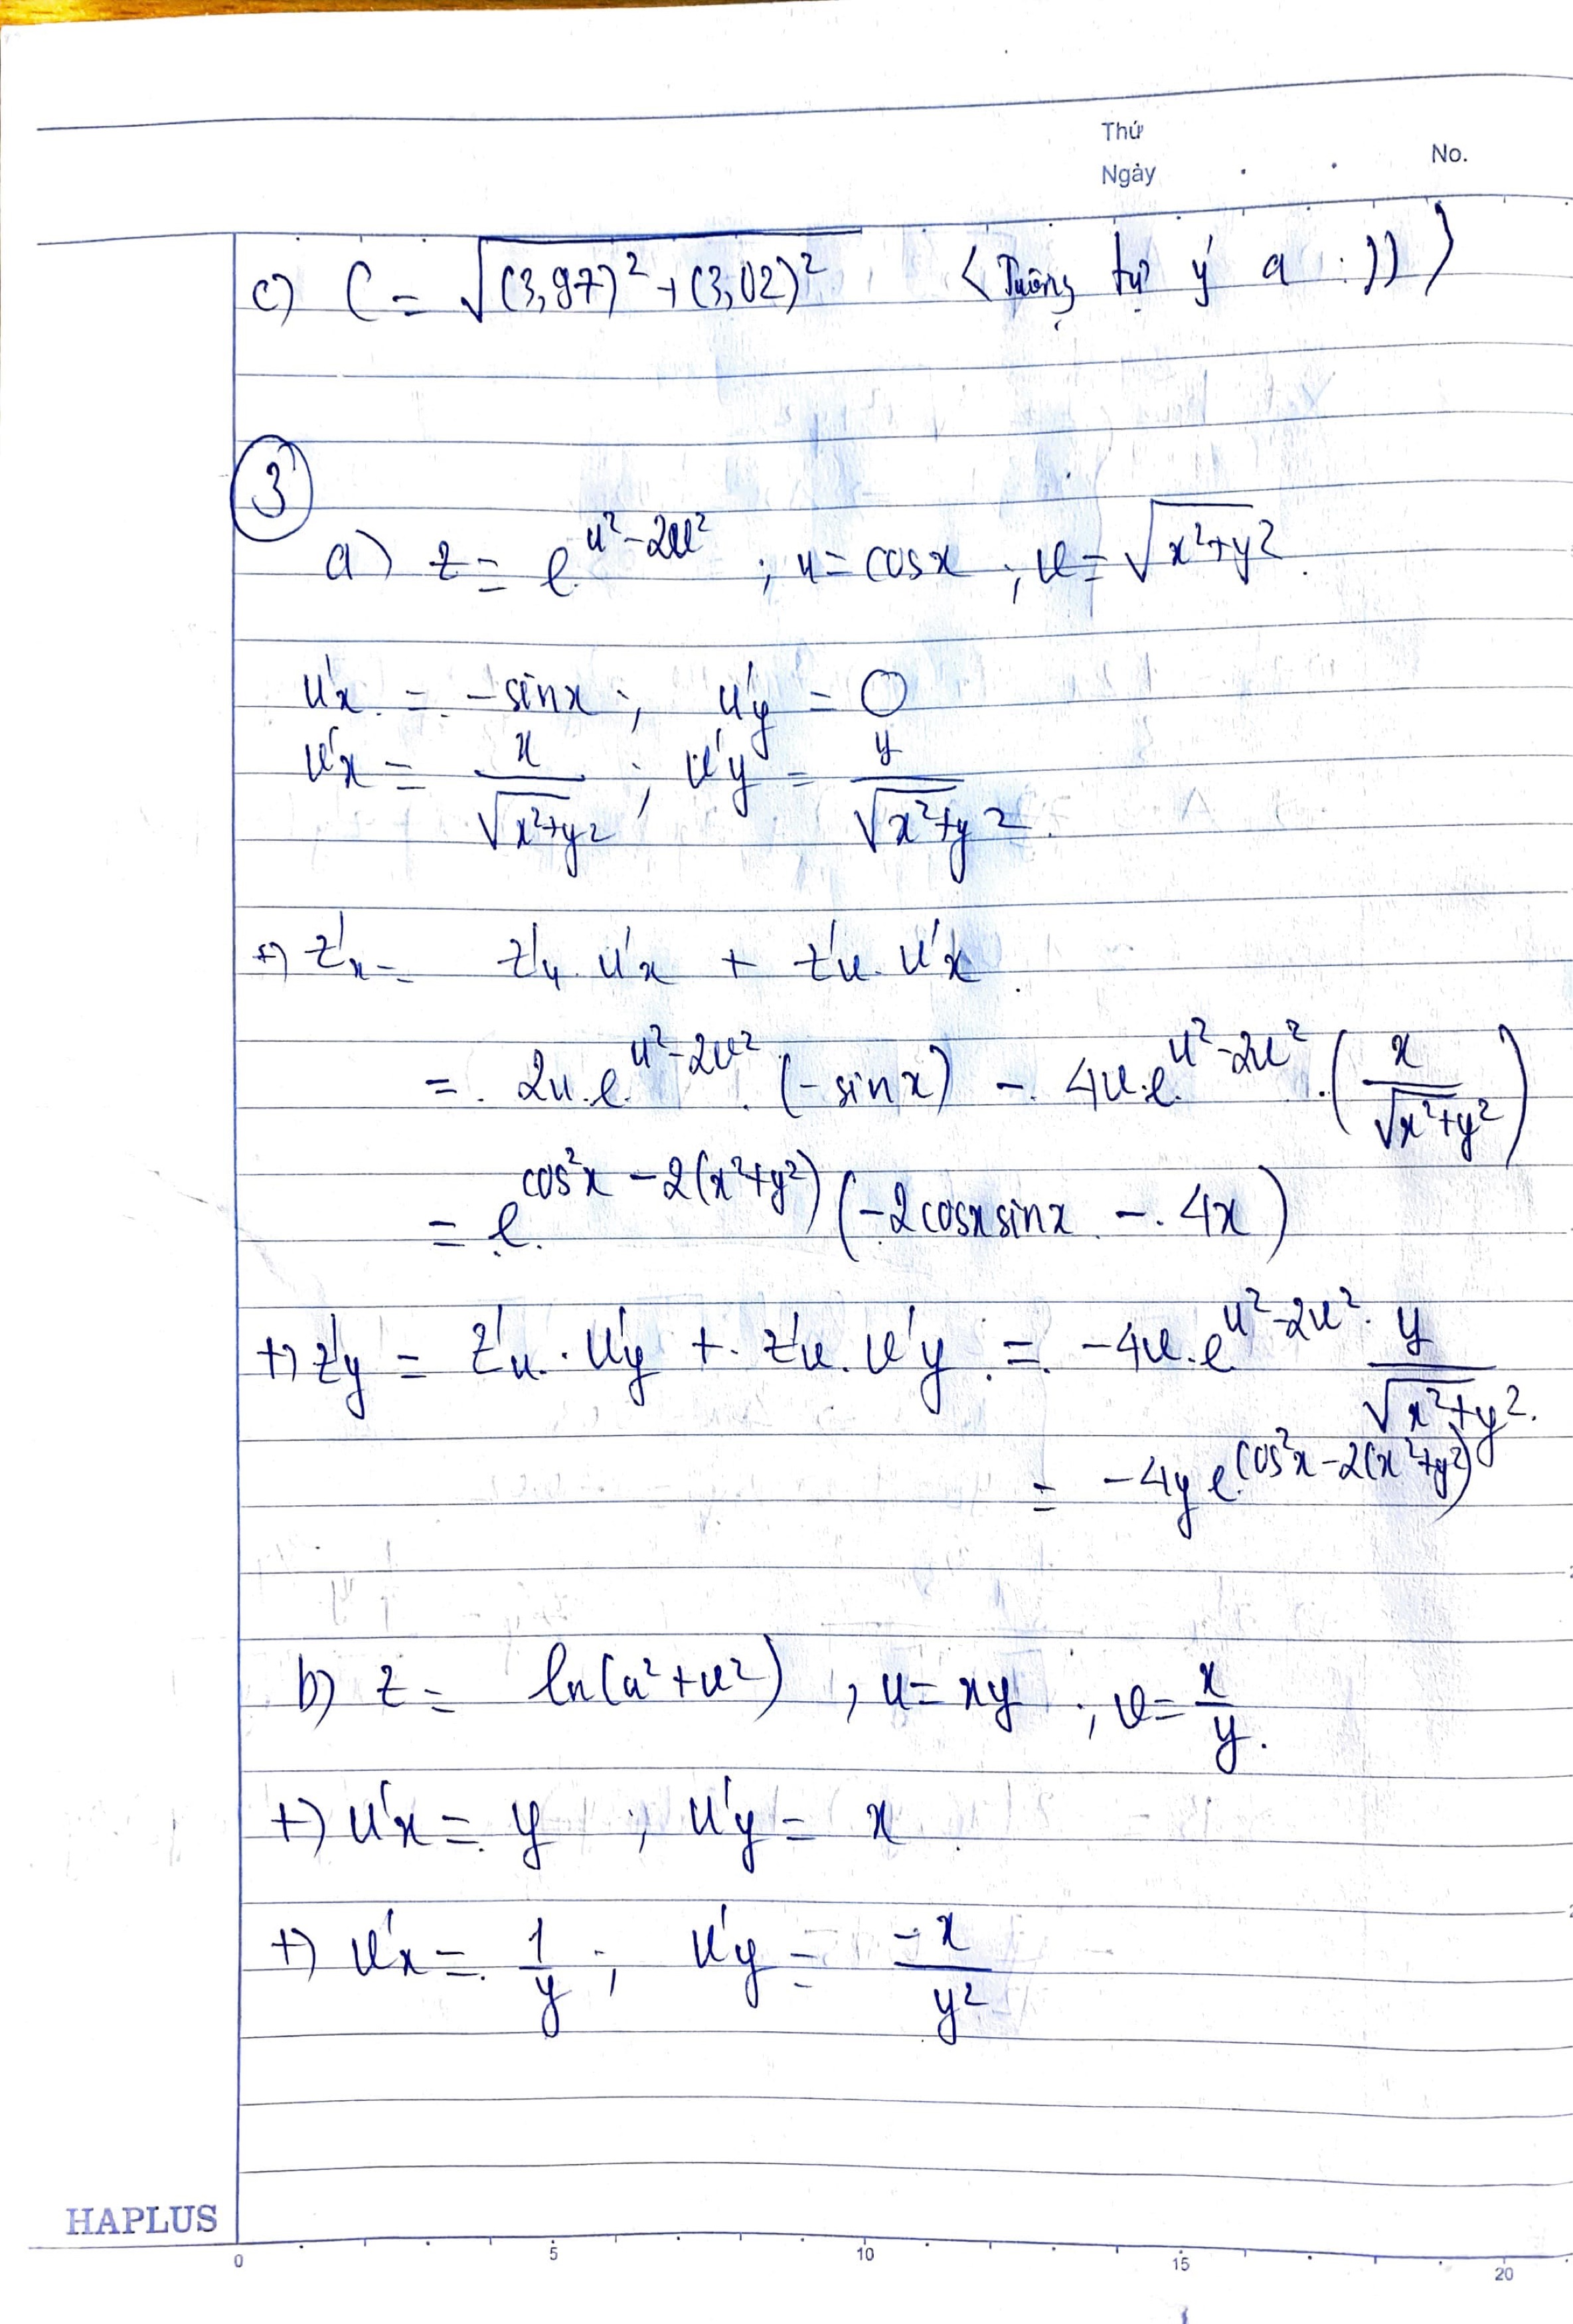 Thứ
Ngày
No.
c) C = √((3,97)² + (3,02)²) (Tương tự ý a :)))
3
a) z = e^(u²-2v²) ; u = cosx ; v = √(x²+y²).
u'x = -sinx ; u'y = 0
v'x = x/√(x²+y²) ; v'y = y/√(x²+y²).
+) z'x = z'u . u'x + z'v . v'x.
= 2u.e^(u²-2v²) . (-sinx) - 4v.e^(u²-2v²) . (x/√(x²+y²))
= e^(cos²x - 2(x²+y²)) (-2cosxsinx - 4x)
+) z'y = z'u . u'y + z'v . v'y = -4v.e^(u²-2v²) . y/√(x²+y²).
= -4y e^(cos²x-2(x²+y²))
b) z = ln(u²+v²) , u = xy ; v = x/y.
+) u'x = y ; u'y = x
+) v'x = 1/y ; v'y = -x/y²
HAPLUS
0 5 10 15 20